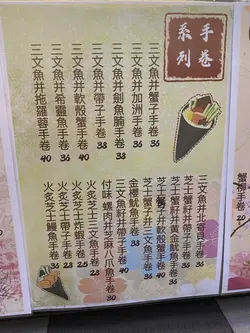 手卷
系列
三文魚井蟹子手卷 36
三文魚井加洲手卷 36
三文魚井劍魚腩手卷 38
三文魚井帶子手卷 38
三文魚井軟殼蟹手卷 40
三文魚井希靈魚手卷 36
三文魚井拖羅蓉手卷 40
三文魚井北寄貝手卷 36
芝士蟹籽井黃金魷魚手卷 36
芝士蟹籽井帶子手卷 38
芝士蟹子井軟殼蟹手卷 40
芝士蟹子井三文魚手卷 36
金櫻魷魚手卷 36
三文魚籽井帶子手卷 40
付味螺肉井芝麻八爪魚手卷 30
火炙芝士三文魚手卷 38
火炙芝士炸蝦手卷
火炙芝士帶子手卷
火炙芝士鰻魚手卷 36
蟹柳手卷 20